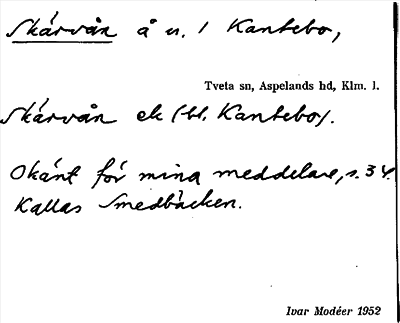 Skárvån å n. 1 Kantebo,
Tveta sn, Aspelands hd, Klm. l.
Skárvån ek (bl. Kantebo).
Okánt fór mina meddelare, s. 34.
Kallas Smedbäcken.
Ivar Modéer 1952